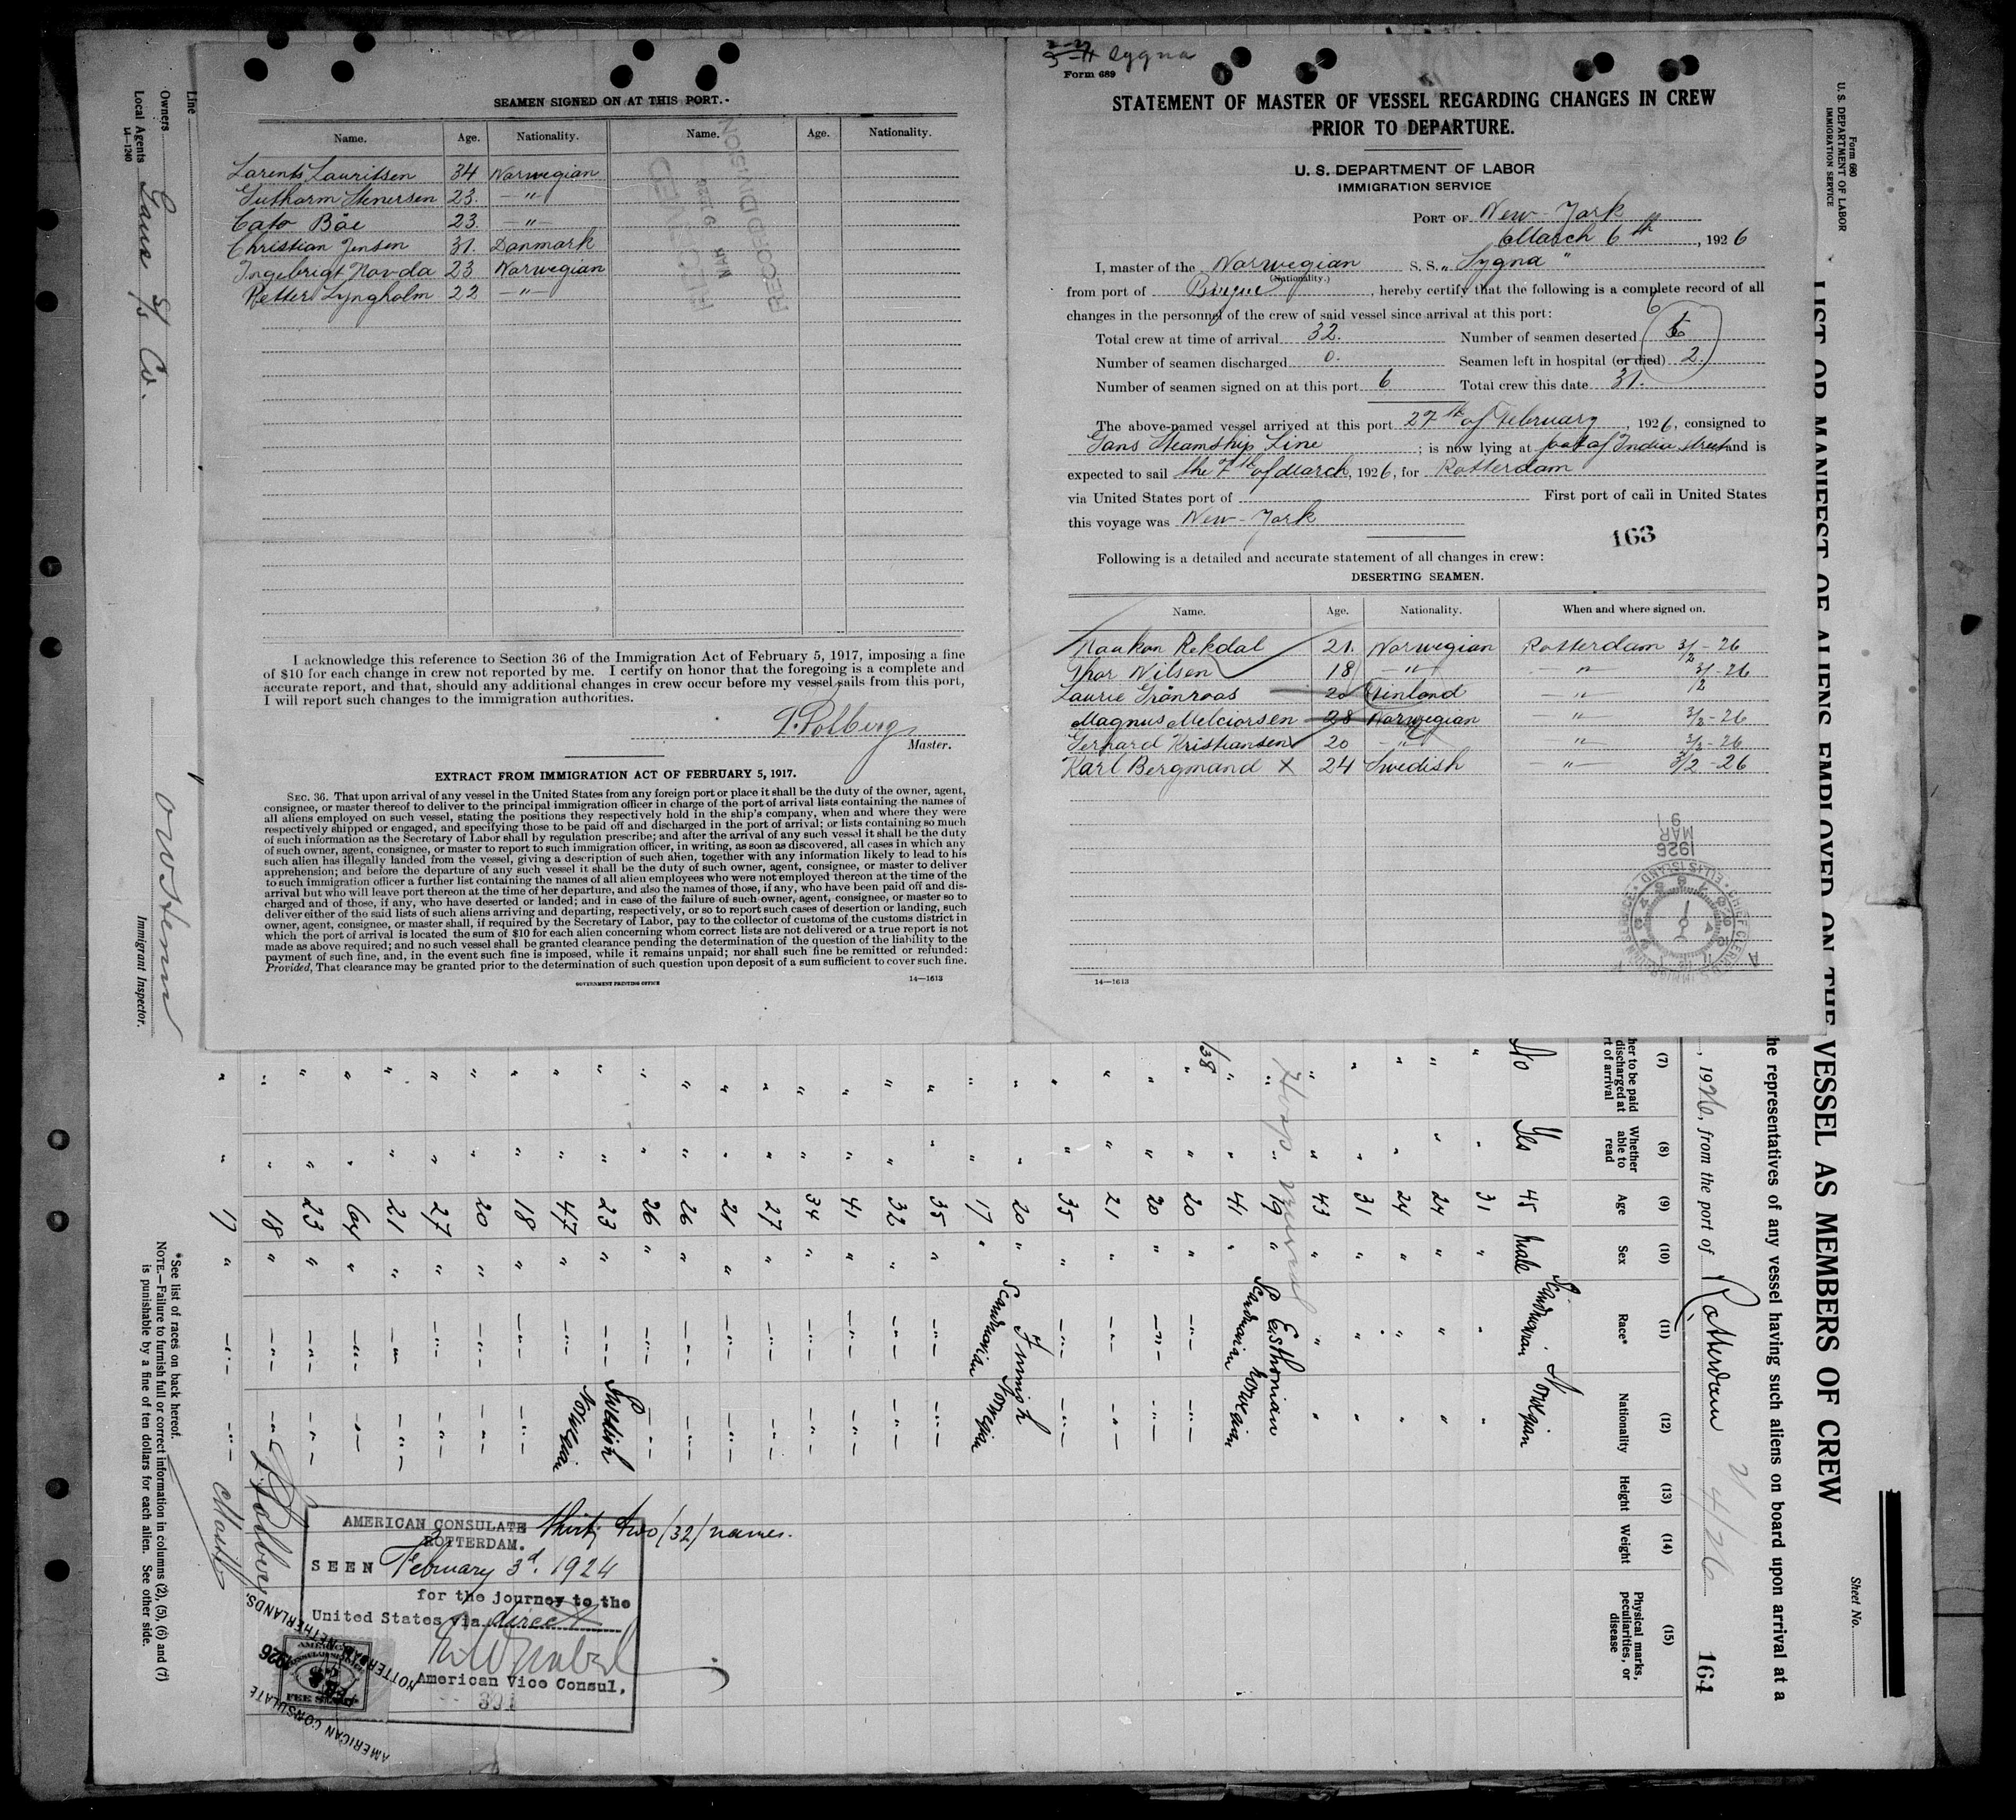 SEAMEN SIGNED ON AT THIS PORT.
Name. Age. Nationality. Name. Age. Nationality.
Larents Lauritsen 34 Norwegian
Guthorm Stenersen 23. —"—
Cato Böe 23. —"—
Christian Jensen 31. Danmark
Ingebrigt Novda 23 Norwegian
Petter Lyngholm 22 —"—
RECORD DIVISION
MAR 9 1926
I acknowledge this reference to Section 36 of the Immigration Act of February 5, 1917, imposing a fine
of $10 for each change in crew not reported by me. I certify on honor that the foregoing is a complete and
accurate report, and that, should any additional changes in crew occur before my vessel sails from this port,
I will report such changes to the immigration authorities.
Master.
EXTRACT FROM IMMIGRATION ACT OF FEBRUARY 5, 1917.
SEC. 36. That upon arrival of any vessel in the United States from any foreign port or place it shall be the duty of the owner, agent,
consignee, or master thereof to deliver to the principal immigration officer in charge of the port of arrival lists containing the names of
all aliens employed on such vessel, stating the positions they respectively hold in the ship's company, when and where they were
respectively shipped or engaged, and specifying those to be paid off and discharged in the port of arrival; or lists containing so much
of such information as the Secretary of Labor shall by regulation prescribe; and after the arrival of any such vessel it shall be the duty
of such owner, agent, consignee, or master to report to such immigration officer, in writing, as soon as discovered, all cases in which any
such alien has illegally landed from the vessel, giving a description of such alien, together with any information likely to lead to his
apprehension; and before the departure of any such vessel it shall be the duty of such owner, agent, consignee, or master to deliver
to such immigration officer a further list containing the names of all alien employees who were not employed thereon at the time of the
arrival but who will leave port thereon at the time of her departure, and also the names of those, if any, who have been paid off and dis-
charged and of those, if any, who have deserted or landed; and in case of the failure of such owner, agent, consignee, or master so to
deliver either of the said lists of such aliens arriving and departing, respectively, or so to report such cases of desertion or landing, such
owner, agent, consignee, or master shall, if required by the Secretary of Labor, pay to the collector of customs of the customs district in
which the port of arrival is located the sum of $10 for each alien concerning whom correct lists are not delivered or a true report is not
made as above required; and no such vessel shall be granted clearance pending the determination of the question of the liability to the
payment of such fine, and, in the event such fine is imposed, while it remains unpaid; nor shall such fine be remitted or refunded:
Provided, That clearance may be granted prior to the determination of such question upon deposit of a sum sufficient to cover such fine.
GOVERNMENT PRINTING OFFICE
14—1613
Sygna
Form 689
STATEMENT OF MASTER OF VESSEL REGARDING CHANGES IN CREW
PRIOR TO DEPARTURE.
U. S. DEPARTMENT OF LABOR
IMMIGRATION SERVICE
PORT OF New-York
March 6th, 1926
I, master of the Norwegian S. S. „Sygna"
(Nationality.)
from port of , hereby certify that the following is a complete record of all
changes in the personnel of the crew of said vessel since arrival at this port:
Total crew at time of arrival 32. Number of seamen deserted 6
Number of seamen discharged 0. Seamen left in hospital (or died) 2.
Number of seamen signed on at this port 6 Total crew this date 31.
The above-named vessel arrived at this port 27th of February, 1926, consigned to
Gans Steamship Line ; is now lying at foot of India street and is
expected to sail the 7th of March, 1926, for Rotterdam
via United States port of First port of call in United States
this voyage was New-York
163
Following is a detailed and accurate statement of all changes in crew:
DESERTING SEAMEN.
Name. Age. Nationality. When and where signed on.
Haakon Rekdal 21. Norwegian Rotterdam 3/2-26
Thor Nilsen 18 —"— —"— 3/2-26
Laurie Grönroos 20 Finland —"—
Magnus Melciorsen 28 Norwegian —"— 3/2-26
Gerhard Kristiansen 20 —"— —"— 3/2-26
Karl Bergmand X 24 Swedish —"— 3/2-26
1926 MAR 9
ELLIS ISLAND
14—1613
Form 680
U. S. DEPARTMENT OF LABOR
IMMIGRATION SERVICE
Sheet No.
LIST OR MANIFEST OF ALIENS EMPLOYED ON THE VESSEL AS MEMBERS OF CREW
he representatives of any vessel having such aliens on board upon arrival at a
, 1926, from the port of Rotterdam 4/26
164
(7) (8) (9) (10) (11) (12) (13) (14) (15)
her to be paid discharged at rt of arrival
Whether able to read
Age
Sex
Race*
Nationality
Height
Weight
Physical marks, peculiarities, or disease
No Yes 45 Male Scandinavian Norwegian
" " 31 " " "
" " 24 " " "
" " 24 " " "
" " 31 " " "
" " 43 " " "
" " 19 " Esthonian
" " 41 " Scandinavian Norwegian
" " 20 " —"— —"—
" " 20 " —"— —"—
" " 21 " —"— —"—
" " 35 " —"— —"—
" " 20 " Finnish
" " 17 " Scandinavian Norwegian
" " 35 " —"— —"—
" " 32 " —"— —"—
" " 41 " —"— —"—
" " 34 " —"— —"—
" " 27 " —"— —"—
" " 21 " —"— —"—
" " 26 " —"— —"—
" " 26 " —"— —"—
" " 23 " —"— Swedish
" " 47 " —"— Norwegian
" " 18 " —"— —"—
" " 20 " —"— —"—
" " 27 " —"— —"—
" " 21 " —"— —"—
" " 64 " —"— —"—
" " 23 " —"— —"—
" " 18 " —"— —"—
" " 17 " —"— —"—
Master
AMERICAN CONSULATE
ROTTERDAM.
thirty two (32) names.
SEEN February 3d. 1924
for the journey to the
United States via direct
American Vice Consul.
391
AMERICAN CONSULATE
ROTTERDAM, NETHERLANDS.
1926
FEE STAMP
*See list of races on back hereof.
NOTE.—Failure to furnish full or correct information in columns (2), (5), (6) and (7)
is punishable by a fine of ten dollars for each alien. See other side.
Line
Owners
Local Agents Gans S/S Co.
14—1240
Immigrant Inspector.